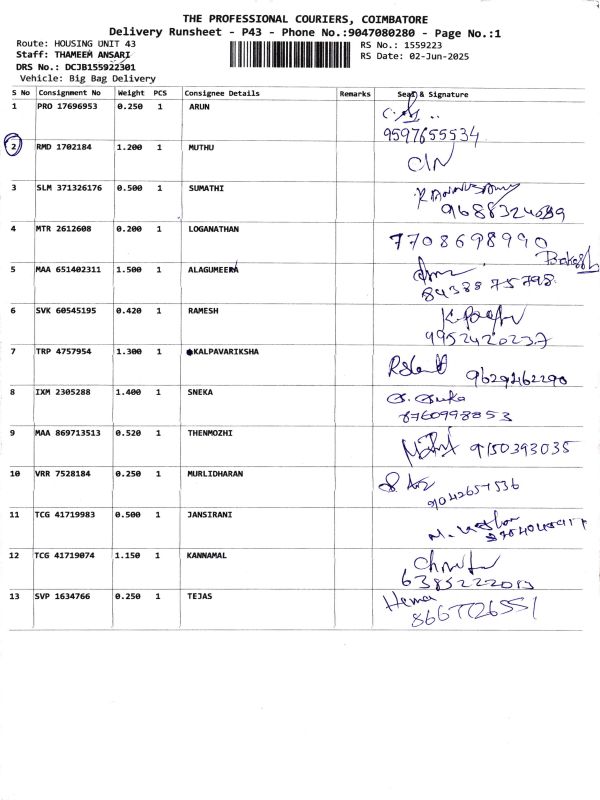 THE PROFESSIONAL COURIERS, COIMBATORE
Delivery Runsheet - P43 - Phone No.:9047080280 - Page No.:1
Route: HOUSING UNIT 43
Staff: THAMEEM ANSARI
DRS No.: DCJB155922301
Vehicle: Big Bag Delivery
RS No.: 1559223
RS Date: 02-Jun-2025
S No Consignment No Weight PCS Consignee Details Remarks Seal & Signature
1 PRO 17696953 0.250 1 ARUN
9597655534
2 RMD 1702184 1.200 1 MUTHU
3 SLM 371326176 0.500 1 SUMATHI
4 MTR 2612608 0.200 1 LOGANATHAN 7708698990
5 MAA 651402311 1.500 1 ALAGUMEERA
84388 75798
6 SVK 60545195 0.420 1 RAMESH
9952420237
7 TRP 4757954 1.300 1 KALPAVARIKSHA 9629462290
8 IXM 2305288 1.400 1 SNEKA
8760998853
9 MAA 869713513 0.520 1 THENMOZHI 9150393035
10 VRR 7528184 0.250 1 MURLIDHARAN
9042657536
11 TCG 41719983 0.500 1 JANSIRANI
12 TCG 41719074 1.150 1 KANNAMAL
6385222013
13 SVP 1634766 0.250 1 TEJAS Hema
8667726551